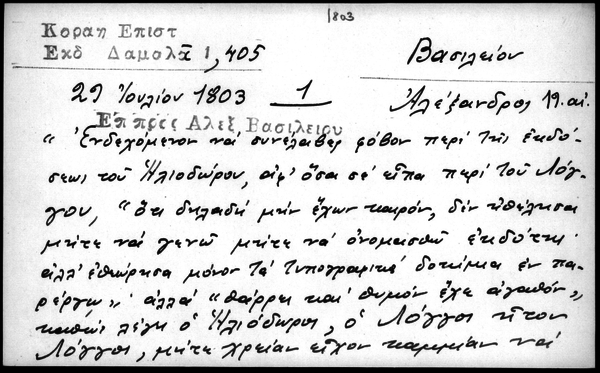 1803
Κοραη Επιστ
Εκδ Δαμαλᾶ 1, 405
Βασιλείου
29 Ἰουλίου 1803 1 Ἀλέξανδρος 19. αἰ.
Επ πρὸς Αλεξ Βασιλειου
"Ἐνδεχόμενον νὰ συνέλαβες φόβον περὶ τῆς ἐκδό-
σεως τοῦ Ἡλιοδώρου, ἀφ' ὅσα σὲ εἶπα περὶ τοῦ Λόγ-
γου, "ὅτι δηλαδὴ μὴν ἔχων καιρόν, δὲν ἠθέλησα
μήτε νὰ γενῶ μήτε νὰ ὀνομασθῶ ἐκδότης·
ἀλλ' ἐθεώρησα μόνον τὰ τυπογραφικὰ δοκίμια ἐν πα-
ρέργῳ"· ἀλλὰ "θάρρει καὶ θυμὸν ἔχε ἀγαθόν",
καθὼς λέγει ὁ Ἡλιόδωρος, ὁ Λόγγος ἦτον
Λόγγος, μήτε χρείαν εἶχον καμμίαν νὰ